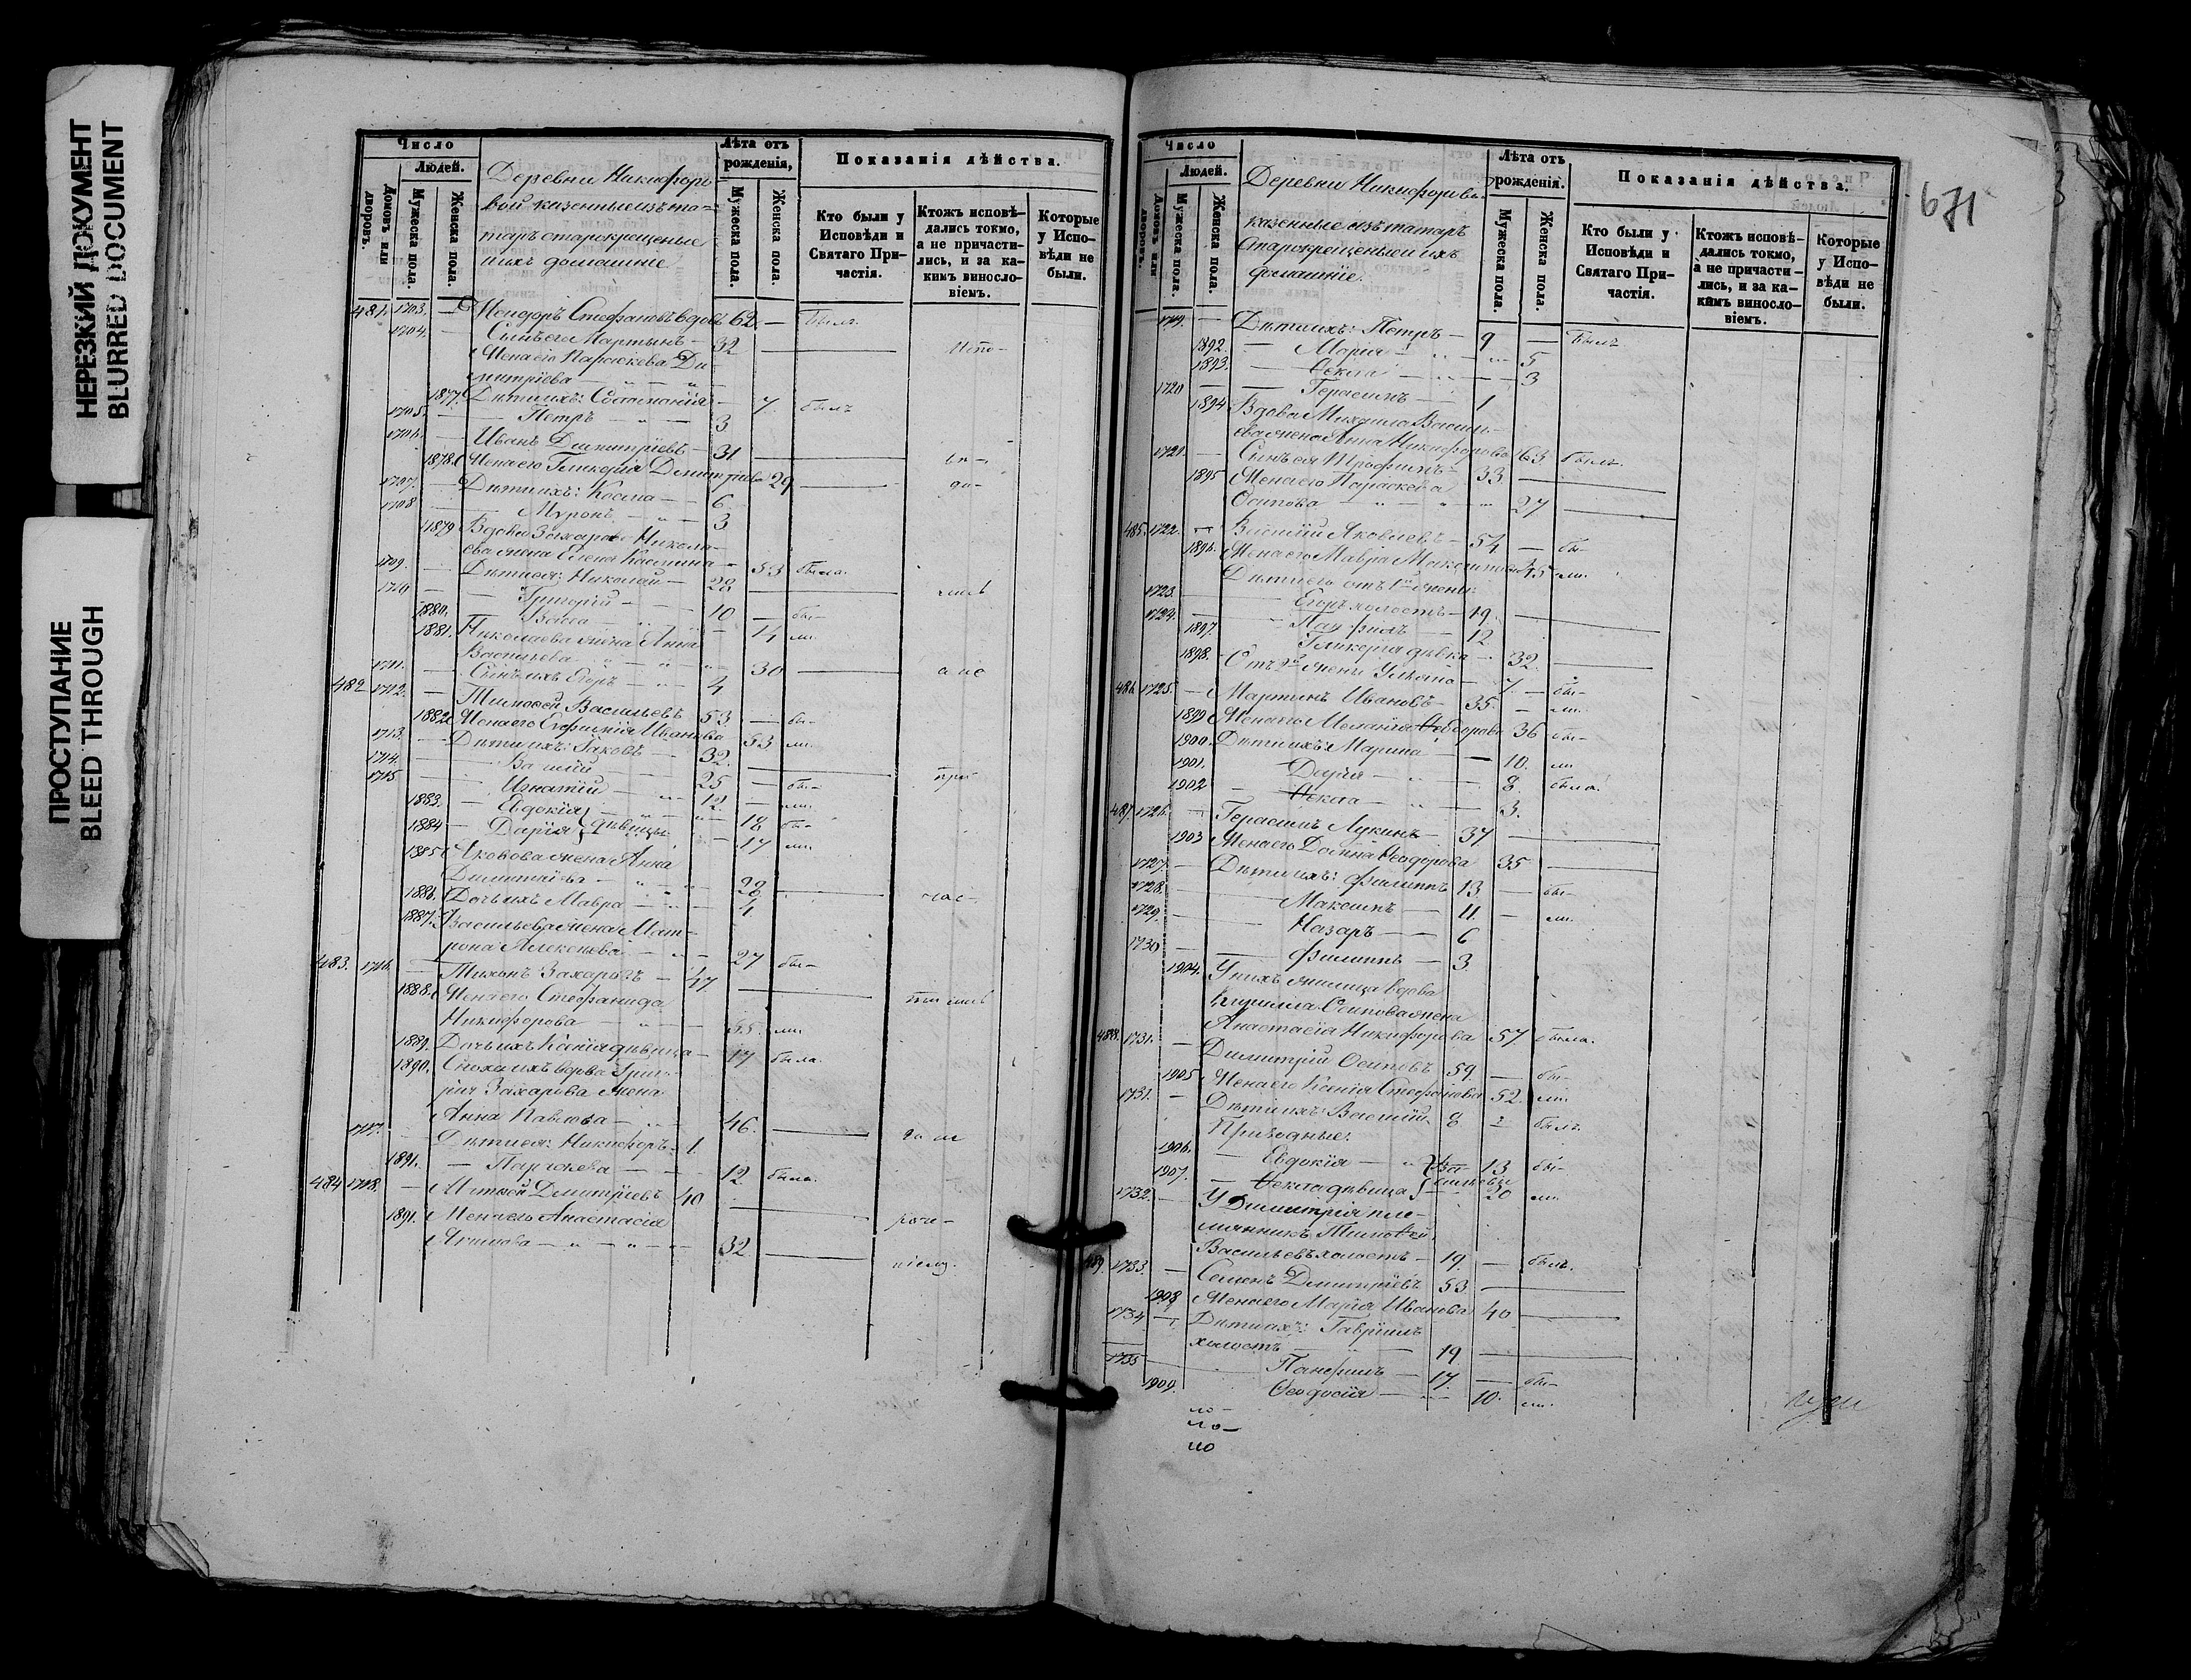 НЕРЕЗКИЙ ДОКУМЕНТ
BLURRED DOCUMENT
ПРОСТУПАНИЕ
BLEED THROUGH
Число
Домовъ или дворовъ.
Людей.
Мужеска пола.
Женска пола.
Деревни Никифоро
вой казенные изъ та-
таръ старокрещеные
ихъ домашние
Лѣта отъ рожденія,
Мужеска пола.
Женска пола.
Показанія дѣйства.
Кто были у Исповѣди и Святаго При-частія.
Ктожъ исповѣ-дались токмо, а не причасти-лись, и за ка-кимъ винословіемъ.
Которые у Испо-вѣди не были.
481. 1703. — Ѳеодоръ Стефановъ вдовъ 62 — былъ
1704. — Сынъ его Мартынъ — 32 — Испо-
Жена его Параскева Ди-
митріева — " — "
1877. Дѣти ихъ: — 7. былъ
1705. — Петръ — " — 3
1706. — Иванъ Димитріевъ — 31 —
1878. Жена его Гликерія Димитріева 29 — ди-
1707. — Дѣти ихъ: Косма — 6
1708 — Муронъ — " — 3
1879 Вдова Захарова Никола-
ева жена Елена Касьянова — 53 была.
1709. — Дѣти ея: Николай — 28 —
1710 — Григорій — 10 — бы-
1880. Васса — 14 ли.
1881. Николаева жена Анна
Васильева — " — " — 30 — а не
1711. — Сынъ ихъ Егоръ — " — 4
482 1712. — Тимоѳей Васильевъ 53 — бы-
1882. Жена его Евфимія Иванова 53 ли.
1713. — Дѣти ихъ: Яковъ — 32. — при
1714. — Василій — 25 — бы-
1715 — Игнатій — " — 12 — ли.
1883. — Евдокія } — 18 бы-
1884 — Дарія } дѣвицы — 17 ли.
1885 Яковова жена Анна
Димитріева — " — 28 — час-
1886. Дочь ихъ Мавра — " — 4
1887. Васильева жена Мат-
рона Алексѣева — " — 27 бы-
483. 1716. — Тихонъ Захаровъ — 47 — тились
1888. Жена его Стефанида
Никифорова — " — 55. ли.
1889. Дочь ихъ Ксенія дѣвица — 17 была.
1890. Сноха ихъ вдова Григо-
рія Захарова жена
Анна Павлова — " — 46. —
1717. — Дѣти ея: Никифоръ — 1.
1891. — Параскева — 12 была.
484 1718. — Матвѣй Димитріевъ 40 — роче-
1891. Жена его Анастасія
Якимова — " — " — 32 — нію.
671
Число
Домовъ или дворовъ.
Людей.
Мужеска пола.
Женска пола.
Деревни Никифоровы
казенные изъ татаръ
старокрещеный ихъ
домашніе.
Лѣта отъ рожденія.
Мужеска пола.
Женска пола.
Показанія дѣйства.
Кто были у Исповѣди и Святаго При-частія.
Ктожъ исповѣ-дались токмо, а не причасти-лись, и за ка-кимъ винословіемъ.
Которые у Испо-вѣди не были.
1719. — Дѣти ихъ: Петръ — 9 — былъ
1892. — Марія — " — 5
1893. — Ѳекла — " — 3
1720 — Герасимъ — 1
1894 Вдова Михаила Василь-
ева жена Анна Никифорова 63 была.
1721. — Сынъ ея Трофимъ — 33 —
1895 Жена его Параскева
Осипова — " — " — 27 —
485. 1722. — Василій Яковлевъ — 54 — бы-
1896. Жена его Мавра Максимова 45 ли.
Дѣти его отъ 1й жены:
1723. Егоръ холостъ — 19. —
1724. — Панфилъ — 12
1897. Гликерія дѣвка — 32. —
1898. Отъ 2й жены Улита — 7. — бы-
486. 1725. — Мартинъ Ивановъ — 35. — ли.
1899 Жена его Меланія Ѳеодорова 36 бы-
1900. Дѣти ихъ: Марина — 10. ли
1901. Дарія — " — 8. была.
1902 — Ѳекла — " — 3.
487. 1726. — Герасимъ Лукинъ — 37 —
1903 Жена его Домна Ѳеодорова 35 —
1727. — Дѣти ихъ: Филиппъ 13. — бы-
1728. — Максимъ — 11. — ли.
1729. — Назаръ — 6
1730 — Филиппъ — 3.
1904. У нихъ жилица вдова
Кирилла Осипова жена
Анастасія Никифорова 57. была.
488. 1731. — Димитрій Осиповъ 59. — бы-
1905 Жена его Ксенія Стефанова 52. ли.
1731. — Дѣти ихъ: Василій 8 — былъ.
Приводные:
1906. — Евдокія — " } Ва- 13 бы-
1907. — Ѳекла дѣвица } сильевы 20 ли.
1732. — У Димитрія пле-
мянникъ Тимоѳей
Васильевъ холостъ — 19. — былъ.
489. 1733. — Семенъ Димитріевъ 53 —
1908 Жена его Марія Иванова 40 —
1734 — Дѣти ихъ: Гавріилъ
холостъ — 19 —
1735 — Панфилъ — 17. — бы-
1909. Ѳеодосія — 10. ли.